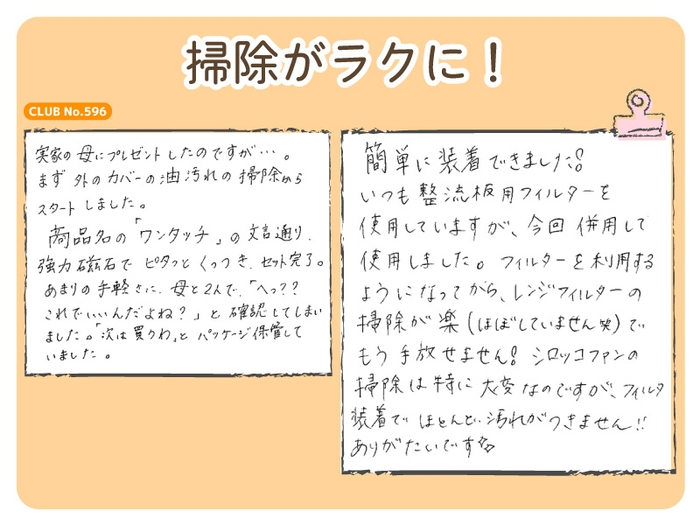 掃除がラクに！
CLUB No.596
実家の母にプレゼントしたのですが…。
まず外のカバーの油汚れの掃除から
スタートしました。
商品名の「ワンタッチ」の文言通り、
強力磁石でピタっとくっつき、セット完了。
あまりの手軽さに、母と2人で、「へっ??
これでいいんだよね？」と確認してしまい
ました。「次は買うわ」とパッケージ保管して
いました。
簡単に装着できました!!
いつも整流板用フィルターを
使用していますが、今回併用して
使用しました。フィルターを利用する
ようになってから、レンジフィルターの
掃除が楽(ほぼしていません笑)で
もう手放せません!! シロッコファンの
掃除は特に大変なのですが、フィルタ
装着でほとんど汚れがつきません!!
ありがたいです☆